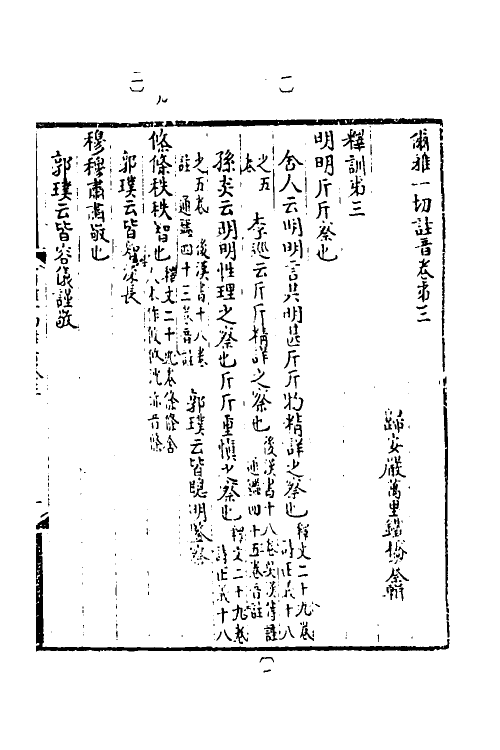 爾雅一切註音卷第三
歸安嚴萬里鐵橋參輯
釋訓第三
明明斤斤察也
舍人云明明言其明甚斤斤物精詳之察也釋文二十九卷詩正義十八
之五卷 李巡云斤斤精詳之察也後漢書十八卷吳漢傳註通鑑四十五卷音註
孫炎云明明性理之察也斤斤重愼之察也釋文二十九卷詩正義十八
之五卷後漢書十八卷註通鑑四十三卷音註 郭璞云皆聰明鑒察
條條秩秩智也釋文二十九卷條條舍人本作攸攸沈亦音條
郭璞云皆智深長
穆穆肅肅敬也
郭璞云皆容儀謹敬